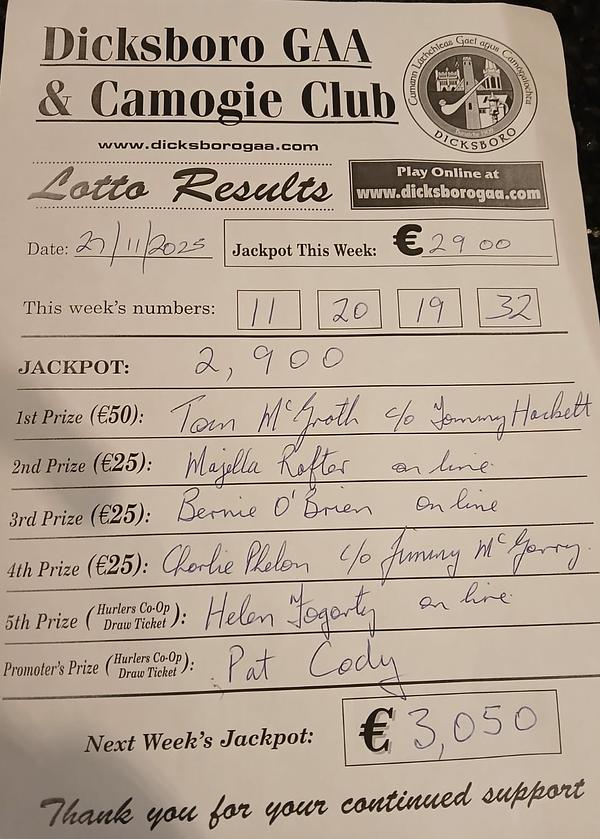 Dicksboro GAA
& Camogie Club
Cumann Lúthchleas Gael agus Camógaíochta
DICKSBORO
www.dicksborogaa.com
Lotto Results
Play Online at
www.dicksborogaa.com
Date: 27/11/2025
Jackpot This Week: €2900
This week's numbers: 11 20 19 32
JACKPOT: 2,900
1st Prize (€50): Tom McGrath c/o Tommy Hackett
2nd Prize (€25): Majella Rafter on line
3rd Prize (€25): Bernie O'Brien on line
4th Prize (€25): Charlie Phelan c/o Jimmy McGarry
5th Prize (Hurlers Co-Op Draw Ticket): Helen Fogarty on line
Promoter's Prize (Hurlers Co-Op Draw Ticket): Pat Cody
Next Week's Jackpot: €3,050
Thank you for your continued support